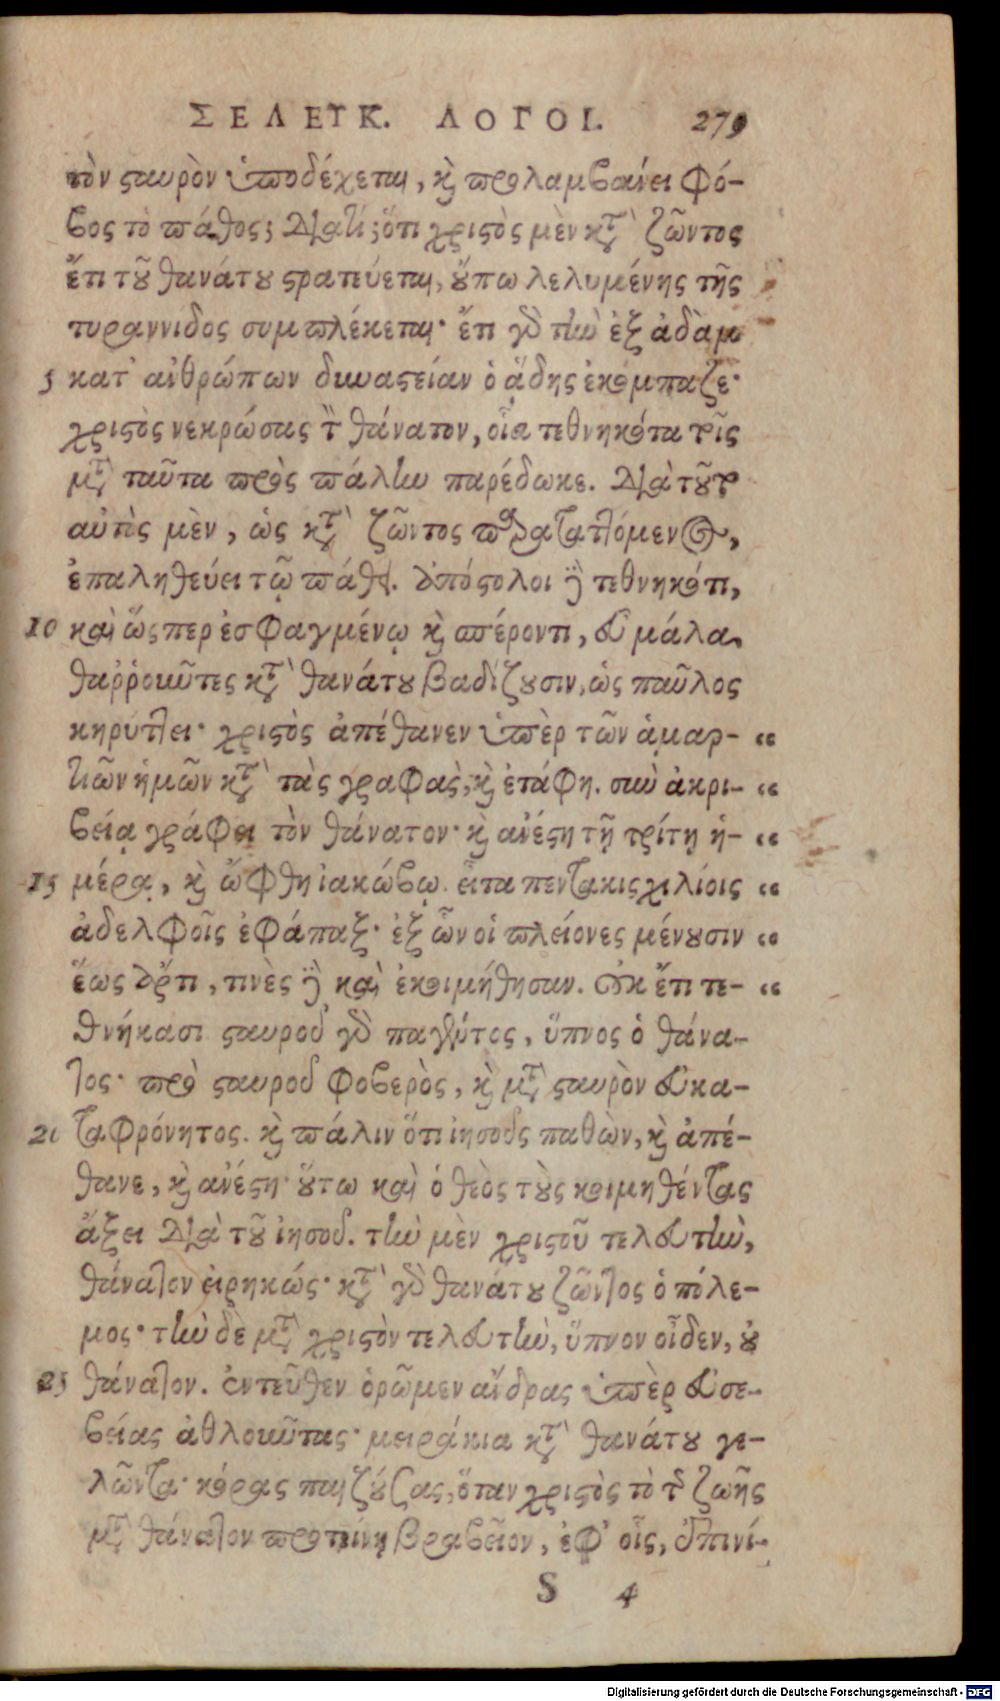 ΣΕΛΕΥΚ. ΛΟΓΟΙ. 279
τὸν ϛαυρὸν ὑποδέχεται, κὶ προλαμβάνει φό-
βος τὸ πάθος; Διατί; ὅτι χριϛὸς μὲν κτ̃ ζῶντος
ἔτι τȣ͂ θανάτȣ ϛρατεύεται, ȣ̓́πω λελυμένης τῆς
τυραννίδος συμπλέκεται· ἔτι γὸ τὴν ἐξ ἀδὰμ
5 κατ' ἀνθρώπων δυναϛείαν ὁ ᾅδης ἐκόμπαζε·
χριϛὸς νεκρώσας τ̀ θάνατον, οἷα τεθνηκότα τοῖς
μτ̃ ταῦτα πρὸς πάλην παρέδωκε. Διὰ τȣ͂το
αὐτὸς μὲν, ὡς κτ̃ ζῶντος παραταττόμενος,
ἐπαληθεύει τῷ πάθει. ἀπόϛολοι ἢ τεθνηκότι,
10 καὶ ὥςπερ ἐσφαγμένῳ κὶ σπέροντι, εὖ μάλα
θαῤῥοιῶτες κτ̃ θανάτȣ βαδίζȣσιν, ὡς παῦλος
κηρύττει· χριϛὸς ἀπέθανεν ὑπὲρ τῶν ἁμαρ- “
τιῶν ἡμῶν κτ̃ τὰς γραφὰς, κὶ ἐτάφη. σὺν ἀκρι- “
βείᾳ γράφει τὸν θάνατον· κὶ ἀνέϛη τῇ τρίτῃ ἡ- “
15 μέρᾳ, κὶ ὤφθη ἰακώβῳ. εἶτα πεντακισχιλίοις “
ἀδελφοῖς ἐφάπαξ· ἐξ ὧν οἱ πλείονες μένȣσιν “
ἕως ἄρτι, τινὲς ἢ καὶ ἐκοιμήθησαν. Οὐκ ἔτι τε- “
θνήκασι σταυροῦ γὸ παγέντος, ὕπνος ὁ θάνα-
τος· πρὸ σταυροῦ φοβερὸς, κὶ μτ̃ ϛαυρὸν εὐκα-
20 ταφρόνητος. κὶ πάλιν ὅτι ἰησοῦς παθὼν, κὶ ἀπέ-
θανε, κὶ ἀνέϛη· ȣ̔́τω καὶ ὁ θεὸς τȣ̀ς κοιμηθέντας
ἄξει Διὰ τȣ͂ ἰησοῦ. τὴν μὲν χριϛοῦ τελευτὴν,
θάνατον εἰρηκώς· κτ̃ γὸ θανάτȣ ζῶντος ὁ πόλε-
μος· τὴν δὲ μτ̃ χριϛὸν τελευτὴν, ὕπνον οἶδεν, ȣ̓
25 θάνατον. ἐντεῦθεν ὁρῶμεν ἄνδρας ὑπὲρ εὐσε-
βείας ἀθλοιῶτας· μειράκια κτ̃ θανάτȣ γε-
λῶντα· κόρας παιζȣ́σας, ὅταν χριϛὸς τὸ τῆς ζωῆς
μτ̃ θάνατον προτείνῃ βραβεῖον, ἐφ' οἷς, ἐπινί-
S 4
Digitalisierung gefördert durch die Deutsche Forschungsgemeinschaft - DFG